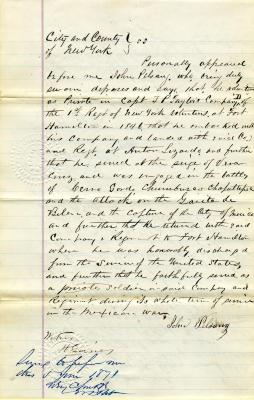 City and County } ss
of New York
Personally appeared
before me John Pilsbry, who being duly
sworn deposes and says that he enlisted
as Private in Capt J P Taylor's Company "D"
the 1st Regt of New York Volunteers, at Fort
Hamilton in 1847 that he embarked with
his Company and landed with said Co.
and Regt. at Anton Lizardo, and further
that he served at the siege of Vera
Cruz, and was engaged in the battles
of Cerro Gordo, Churubusco Chapultepec
and the attack on the Garita de
Belen, and the Capture of the City of Mexico
and further that he returned with said
Company & Regiment to Fort Hamilton
where he was honorably discharged
from the Service of the United States,
and further that he faithfully served as
a private soldier in said Company and
Regiment during its whole term of service
in the Mexican War.
John
Witness
before me
this 5 June 1871